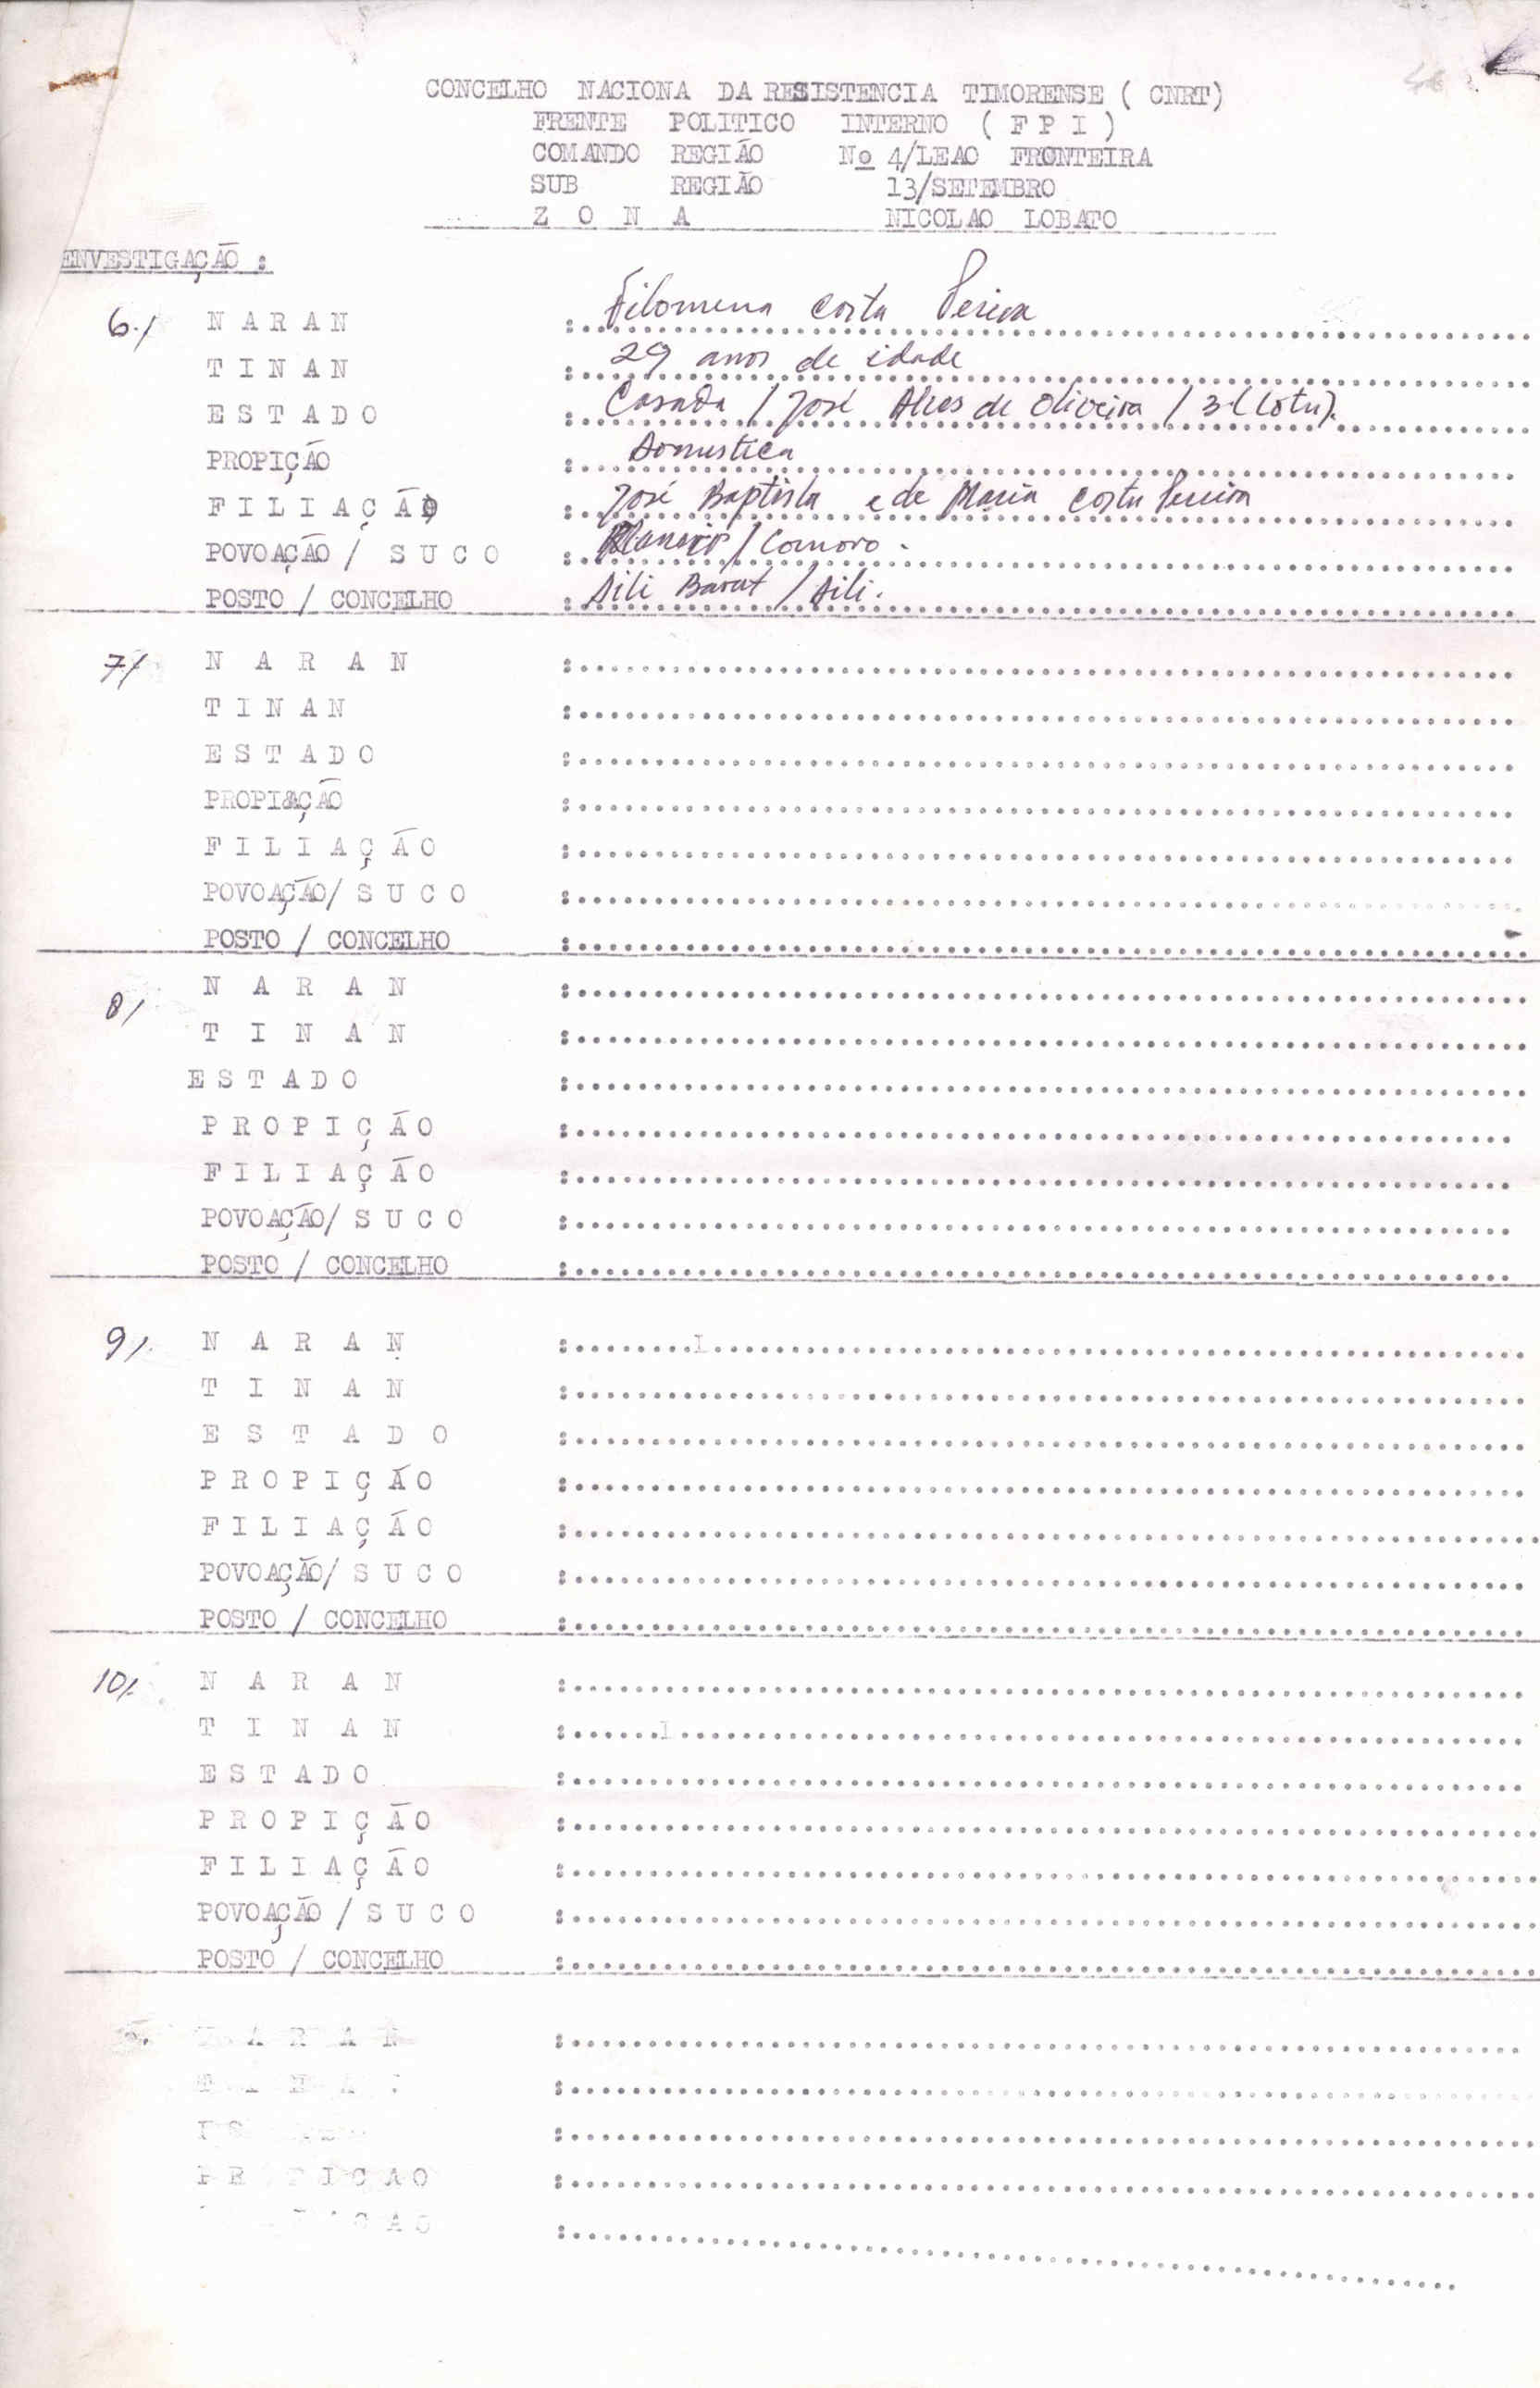 CONCELHO NACIONA DA RESISTENCIA TIMORENSE ( CNRT)
FRENTE POLITICO INTERNO ( F P I )
COMANDO REGIÃO Nº 4/LEAO FRONTEIRA
SUB REGIÃO 13/SETEMBRO
Z O N A NICOLAO LOBATO
ENVESTIGAÇÃO :
6./ N A R A N : Filomena Costa Pereira
T I N A N : 29 anos de idade
E S T A D O : Casada / José Alves de Oliveira / 3 (Lotu).
PROPIÇÃO : Domestica
F I L I A Ç Ã O : José Baptista e de Maria Costa Pereira
POVOAÇÃO / S U C O : / Comoro.
POSTO / CONCELHO : Dili Barat / Dili.
7/ N A R A N :
T I N A N :
E S T A D O :
PROPIAÇÃO :
F I L I A Ç Ã O :
POVOAÇÃO/ S U C O :
POSTO / CONCELHO :
8/ N A R A N :
T I N A N :
E S T A D O :
P R O P I Ç Ã O :
F I L I A Ç Ã O :
POVOAÇÃO/ S U C O :
POSTO / CONCELHO :
9/. N A R A N :
T I N A N :
E S T A D O :
P R O P I Ç Ã O :
F I L I A Ç Ã O :
POVOAÇÃO/ S U C O :
POSTO / CONCELHO :
10/. N A R A N :
T I N A N :
E S T A D O :
P R O P I Ç Ã O :
F I L I A Ç Ã O :
POVOAÇÃO / S U C O :
POSTO / CONCELHO :